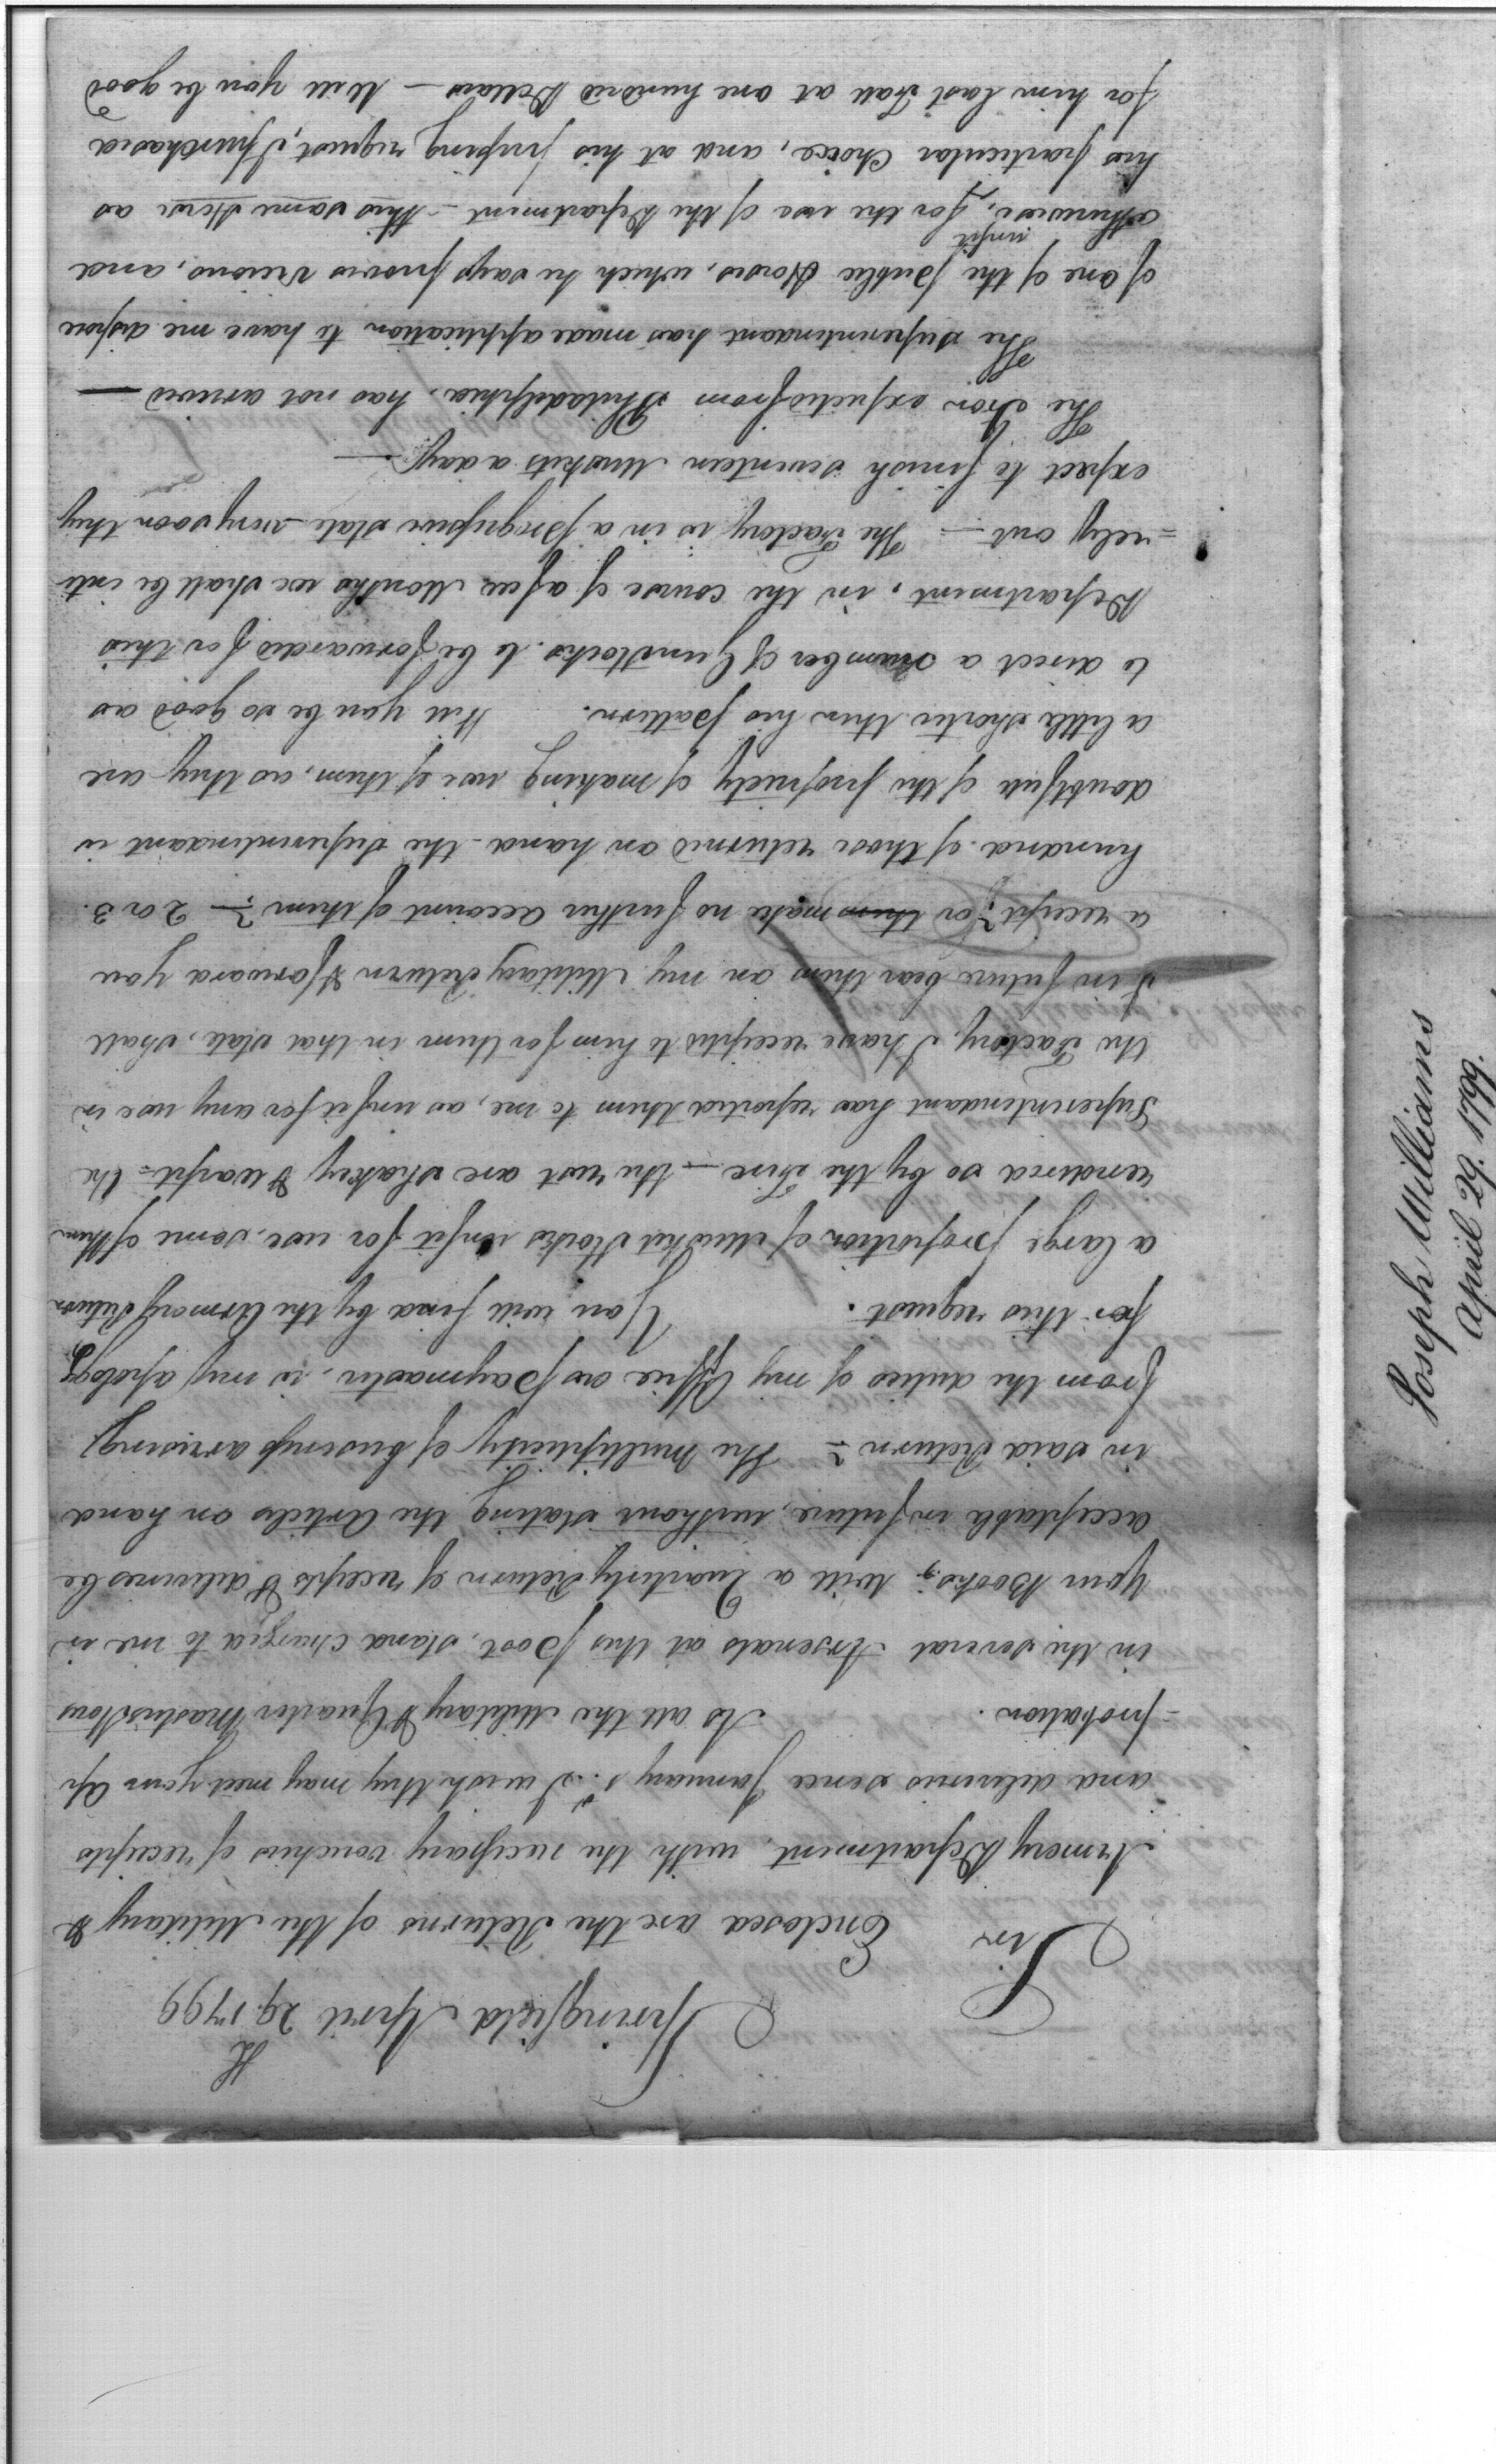 Springfield April 29. 1799
Sir
Enclosed are the Returns of the Military &
Armory Department, with the necessary vouchers of receipts
and deliveries since January 1st. I wish they may meet your Ap
=probation. As all the Military & Quarter Masters Stores
in the several Arsenals at this post, stand charged to me in
Your Books, Will a Quarterly Return of receipts & deliveries be
acceptable in future, without stating the Articles on hand
in said Return? The multiplicity of business arrising
from the duties of my Office as Paymaster, is my apology
for this request. You will find by the Armory Return
a large proportion of Musket Stocks unfit for use, some of them
rendered so by the Fire — the rest are shakey & warpt = the
Superintendant has reported them to me, as unfit for any use in
the Factory, I have receipted to him for them in that state, shall
I in future bear them on my Military Return & forward you
a receipt? or make no further account of them? — 2 or 3.
hundred of those returned on hand - the Superintendant is
doubtfull of the propriety of making use of them, as they are
a little shorter then his pattern. Will you be so good as
to direct a number of Gunstocks to be forwarded for this
Department, in the course of a few Months we shall be inti
=rely out — The Factory is in a progressive state - very soon they
expect to finish seventeen Muskets a day —
The Iron expected from Philadelphia, has not arrived —
The Superintendant has made application to have me dispose
of one of the public Horses, which he says proves vicious, and
unfit
otherwise, for the use of the Department — this same Horse as
his particular Choice, and at his pressing request, I purchased
for him last Fall at one hundred Dollars — Will you be good
Joseph Williams
April 29. 1799.